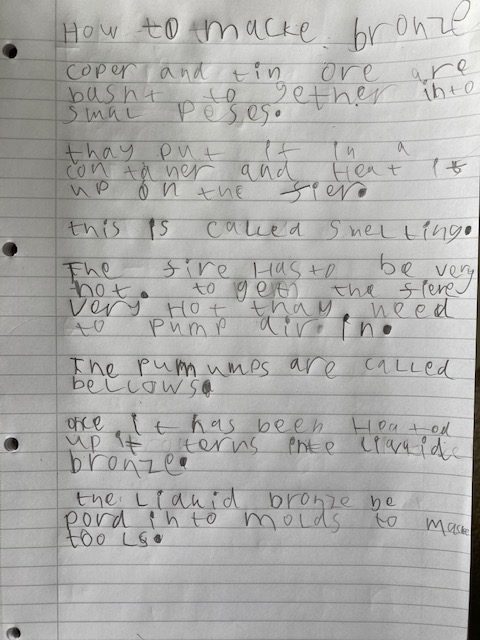 How to macke bronze
coper and tin ore are
basht to gether into
smal peses.
thay put it in a
container and Heat it
up on the fier.
this is called smelting.
The fire Hasto be very
hot. to geth the fiere
very Hot thay need
to pump air in.
The pumumps are called
bellows.
once it has been Heated
up it terns inte liquidc
bronze.
the Liquid bronze be
pord in to molds to macke
tools.